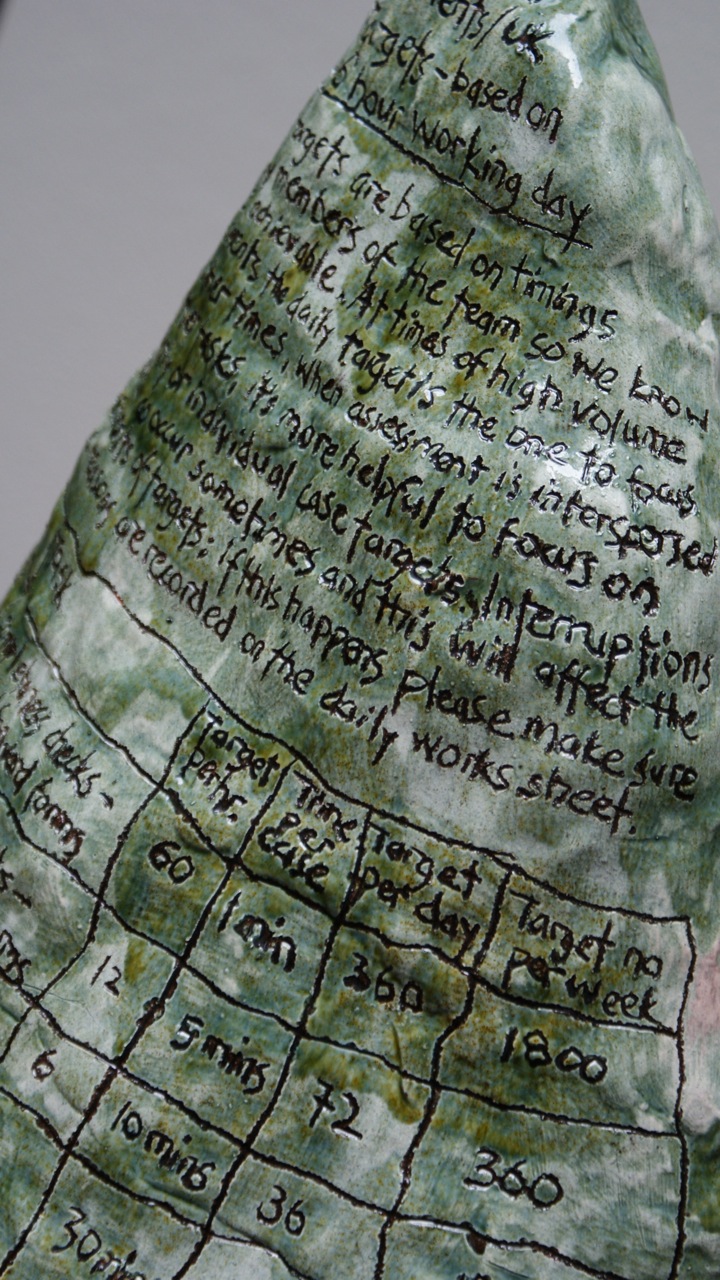 /uk
-based on
hour working day
are based on timings
members of the team so we know
achievable. At times of high volume
the daily target is the one to focus
times, when assessment is interspersed
it's more helpful to focus on
individual case targets. Interruptions
occur sometimes and this will affect the
of targets: if this happens please make sure
are recorded on the daily works sheet.
Target per hr. Time per case Target per day Target no per week
checks-
60 1 min 360 1800
12 5 mins 72 360
6 10 mins 36
30